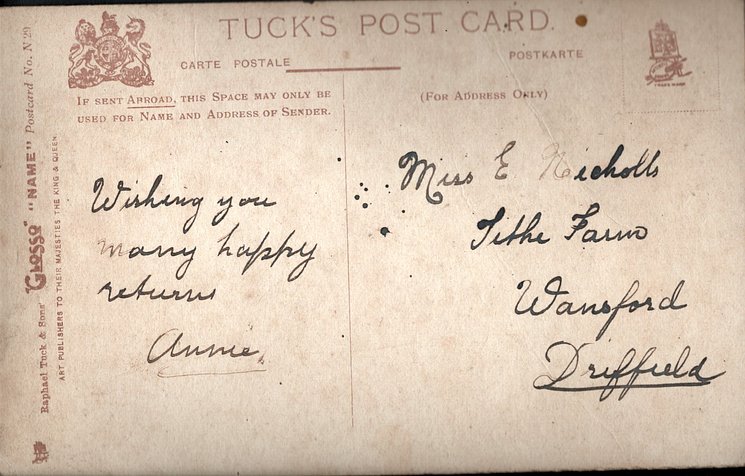 TUCK'S POST CARD.
CARTE POSTALE
POSTKARTE
IF SENT ABROAD, THIS SPACE MAY ONLY BE
USED FOR NAME AND ADDRESS OF SENDER.
(FOR ADDRESS ONLY)
TRADE MARK
Raphael Tuck & Sons' "GLOSSO" "NAME" Postcard No. N 29
ART PUBLISHERS TO THEIR MAJESTIES THE KING & QUEEN.
Wishing you
many happy
returns
Annie.
Miss E Nicholls
Tithe Farm
Wansford
Driffield